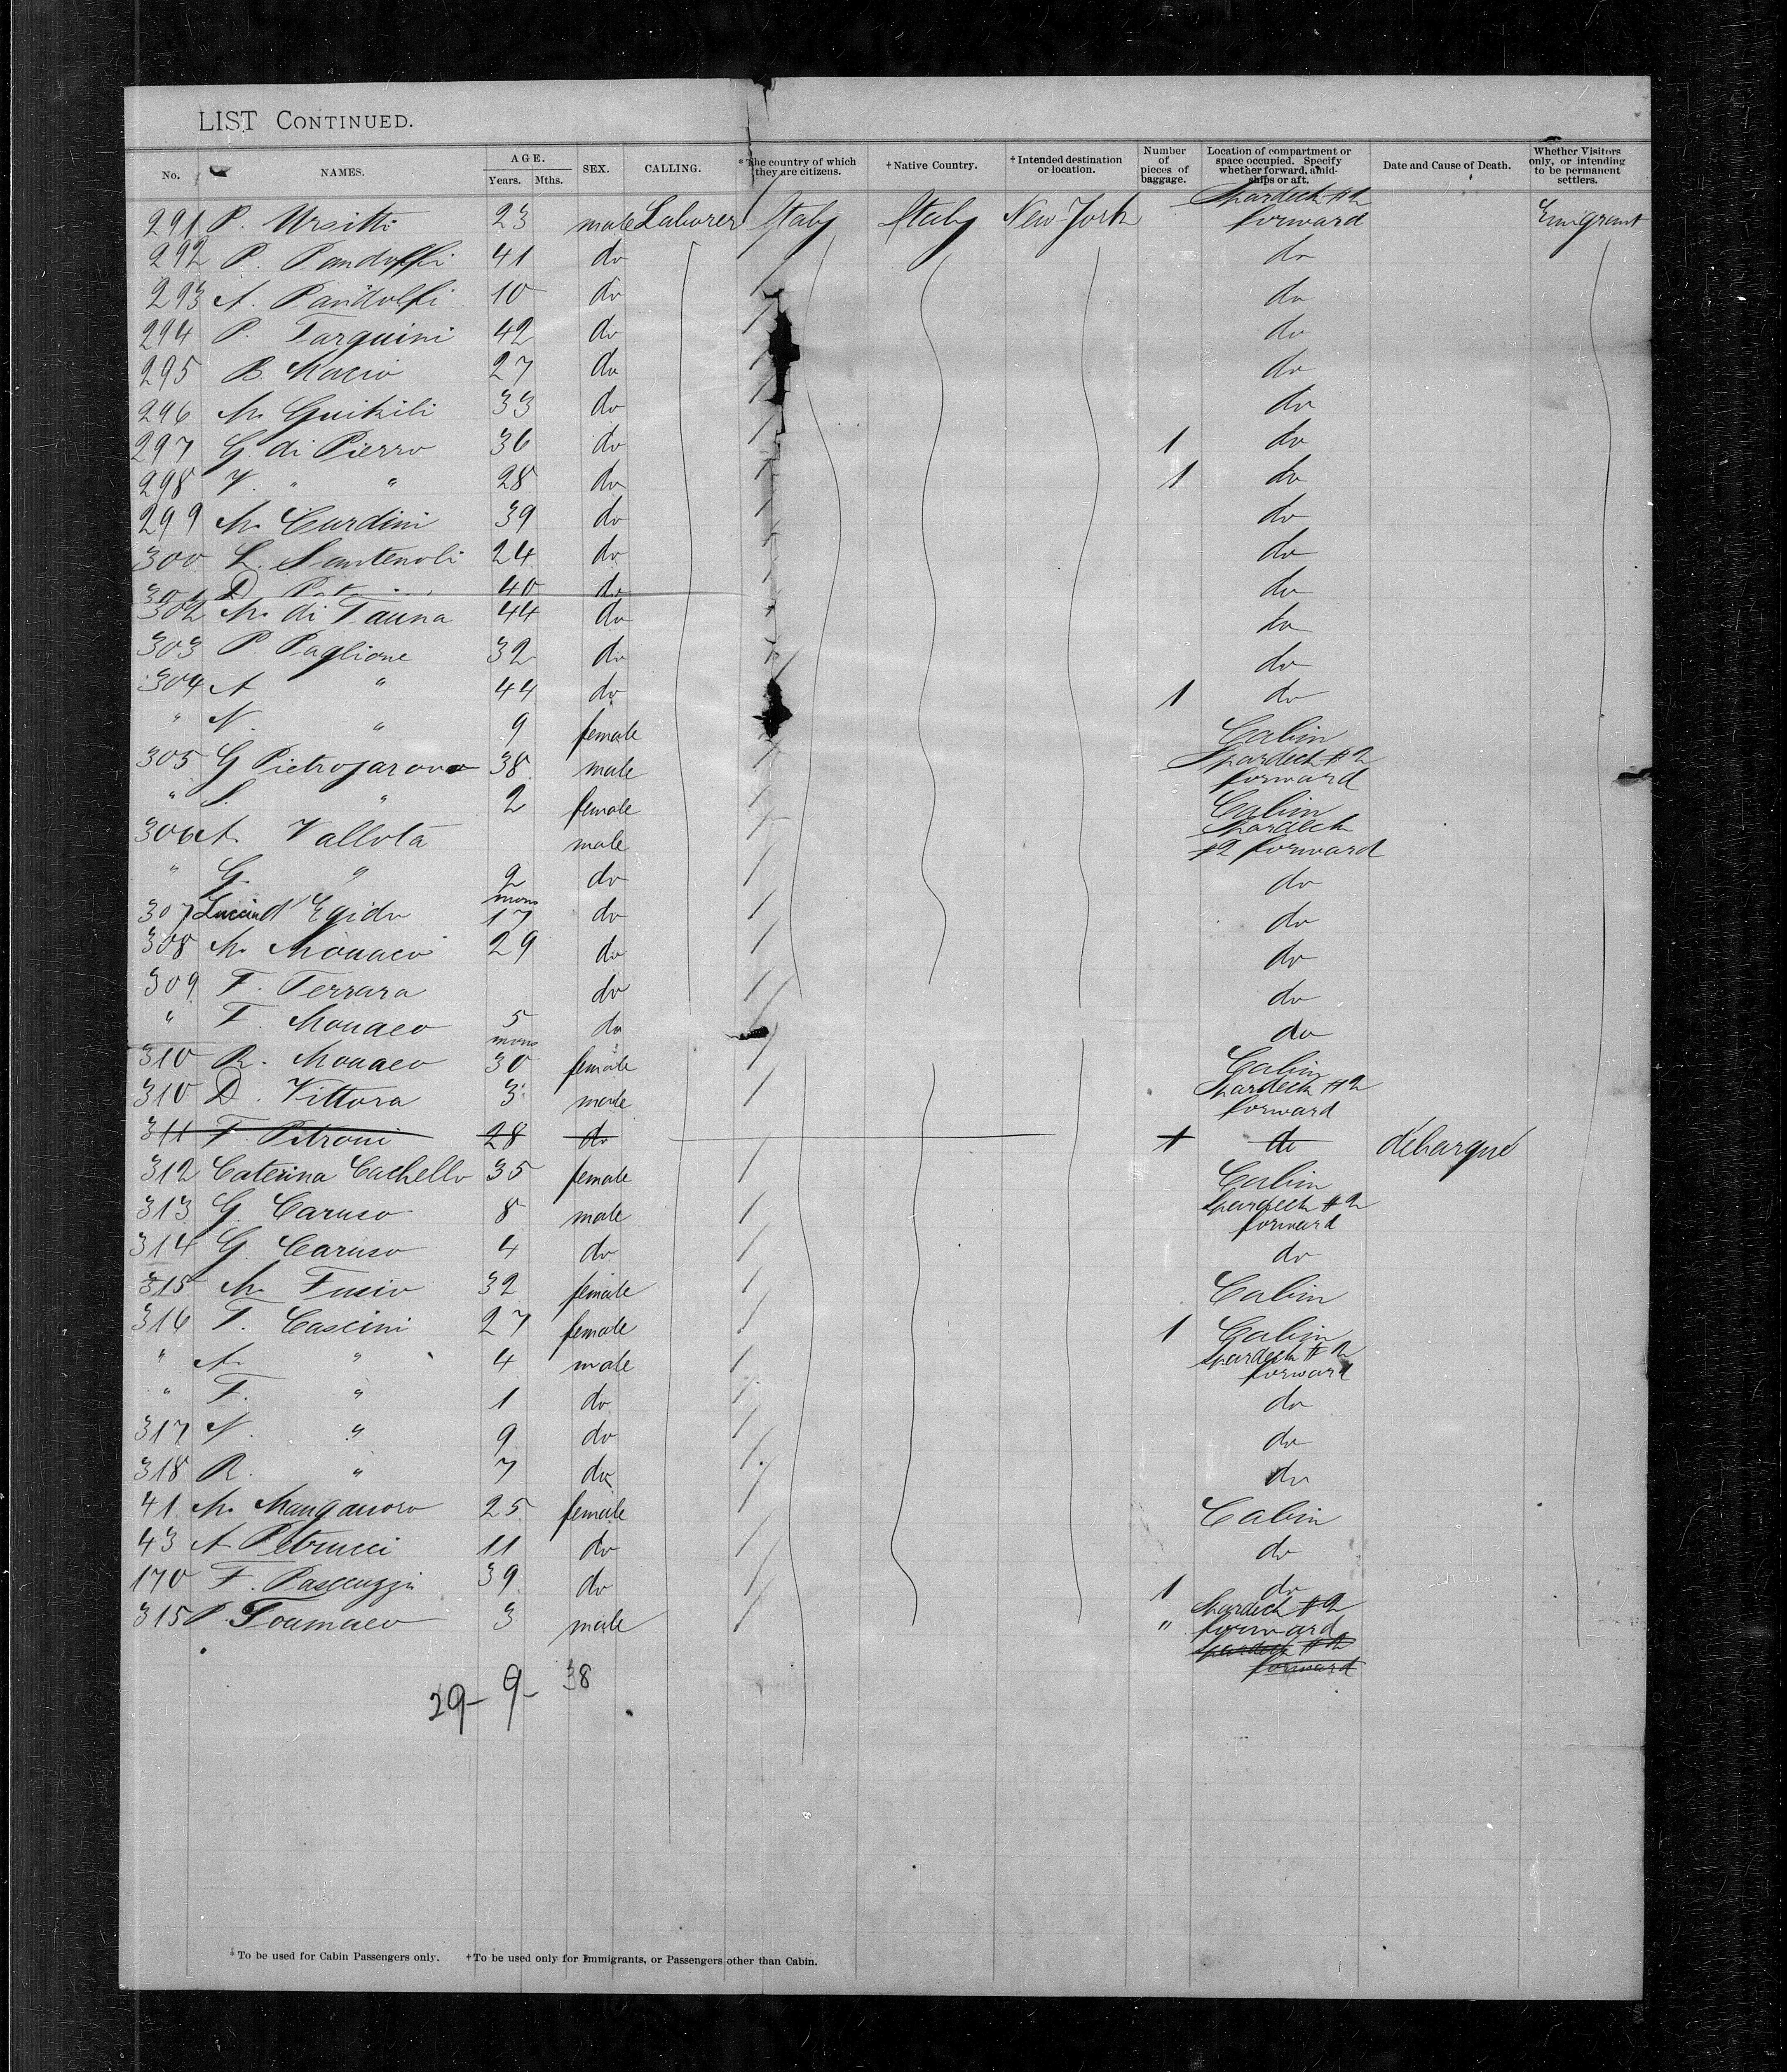 LIST CONTINUED.
No. NAMES. AGE. Years. Mths. SEX. CALLING. * The country of which they are citizens. † Native Country. † Intended destination or location. Number of pieces of baggage. Location of compartment or space occupied. Specify whether forward, amidships or aft. Date and Cause of Death. Whether Visitors only, or intending to be permanent settlers.
291 P. Ursitti 23 male Laborer Italy Italy New York Spardeck #2 forward Emigrant
292 P. Pandolfi 41 do do
293 A. Pandolfi 10 do do
294 P. Tarquini 42 do do
295 B. Macio 27 do do
296 M. 33 do do
297 G. di Pierro 36 do 1 do
298 V. " " 28 do 1 do
299 M. Curdini 39 do do
300 L. Santenoli 24 do do
301 D. 40 do do
302 M. di Tauna 44 do do
303 P. Paglione 32 do do
304 A " 44 do 1 do
" N. " 9 female Cabin
305 G 38 male Spardeck #2 forward
" S. " 2 female Cabin
306 A. Vallota male Spardeck #2 forward
" G. " 2 mons do do
307 Luccia d'Egido 17 do do
308 M. Monaco 29 do do
309 F. Ferrara do do
" F. Monaco 5 mons do do
310 R. Monaco 30 female Cabin
310 D. Vittora 3 male Spardeck #2 forward
311 F. Pitroni 28 do 1 do débarqué
312 Caterina Cachello 35 female Cabin
313 G. Caruso 8 male Spardeck #2 forward
314 G. Caruso 4 do do
315 M. Fusio 32 female Cabin
316 T. Cascini 27 female 1 Cabin
" A. " 4 male Spardeck #2 forward
" F. " 1 do do
317 N. " 9 do do
318 R. " 7 do do
41 M. Manganoro 25 female Cabin
43 A Petrucci 11 do do
170 F. Pascuzzi 39 do 1 do
315 P. Toumaeo 3 male " Spardeck #2 forward
Spardeck #2 forward
29- 9- 38
* To be used for Cabin Passengers only. † To be used only for Immigrants, or Passengers other than Cabin.